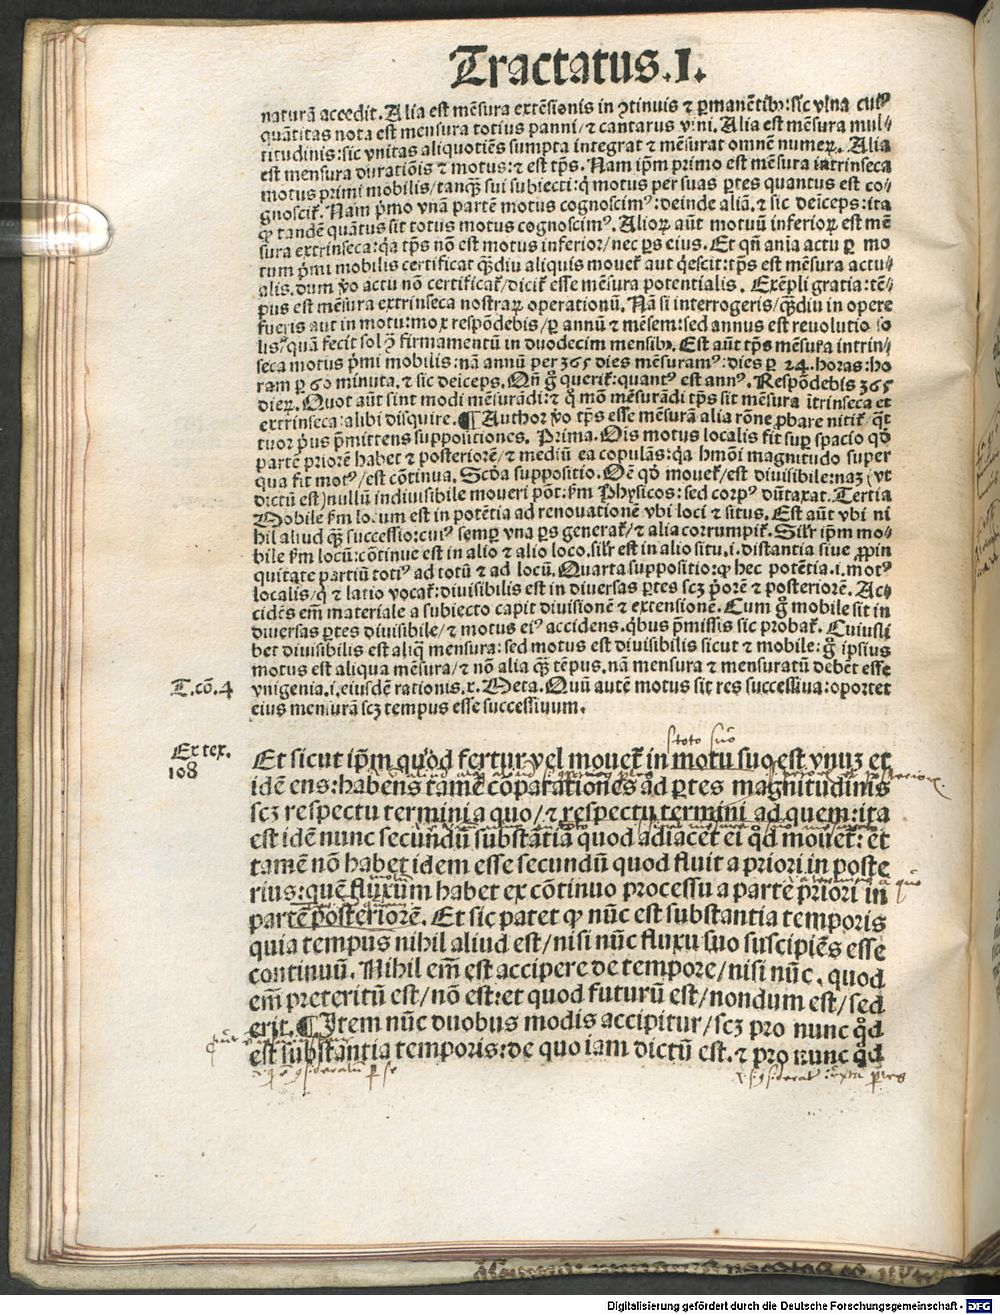 Tractatus.I.
naturã accedit. Alia est mẽsura extẽsionis in ꝯtinuis ⁊ ꝑmanẽtibꝰ: sic vlna cuiꝰ
quãtitas nota est mensura totius panni/⁊ cantarus vini. Alia est mẽsura mul⸗
titudinis: sic vnitas aliquotiẽs sumpta integrat ⁊ mẽsurat omnẽ numeꝝ. Alia
est mensura durationis ⁊ motus: ⁊ est tp̃s. Nam ip̃m primo est mẽsura intrinseca
motus primi mobilis/tanqꝫ sui subiecti: q̃ motus per suas ꝑtes quantus est co⸗
gnoscit̃. Nam p̃mo vnã partẽ motus cognoscimꝰ: deinde aliã. ⁊ sic deiceps: ita
ꝙ tandẽ quãtus sit totus motus cognoscimꝰ. Alioꝝ aũt motuũ inferioꝝ est mẽ
sura extrinseca: q̃a tp̃s nõ est motus inferior/nec ꝑs eius. Et qñ anĩa actu ꝑ mo
tum p̃mi mobilis certificat qꝫ̃diu aliquis mouet̃ aut q̃escit: tp̃s est mẽsura actu⸗
alis. dum ṽo actu nõ certificat̃/dicit̃ esse mẽsura potentialis. Exẽpli gratia: tẽ⸗
pus est mẽsura extrinseca nostraꝝ operationũ. Nã si interrogeris/qꝫ̃diu in opere
fueris aut in motu: mox respõdebis/ꝑ annũ ⁊ mẽsem: sed annus est reuolutio so
lis/quã fecit sol ꝯ̃ firmamentũ in duodecim mensibꝰ. Est aũt tp̃s mẽsura intrin⸗
seca motus p̃mi mobilis: nã annũ per 365 dies mẽsuramꝰ: dies ꝑ 24. horas: ho
ram ꝑ 60 minuta. ⁊ sic deiceps. Qñ g̊ querit̃: quantꝰ est annꝰ. Respõdebis 365
dieꝝ. Quot aũt sint modi mẽsurãdi: ⁊ q̊ mõ mẽsurãdi tp̃s sit mẽsura ĩtrinseca et
extrinseca: alibi disquire. ¶ Author ṽo tp̃s esse mẽsurã alia rõne ꝓbare nitit̃/q̃t
tuor p̃us p̃mittens suppositiones. Prima. Oĩs motus localis fit suꝑ spacio qd̃
partẽ priorẽ habet ⁊ posteriorẽ/⁊ mediũ ea copulãs: q̃a hmõi magnitudo super
qua fit motꝰ/est cõtinua. Scd̃a suppositio. Oẽ qd̃ mouet̃/est diuisibile: naꝫ (vt
dictũ est) nullũ indiuisibile moueri põt: ẜm Physicos: sed corpꝰ dũtaxat. Tertia
Mobile ẜm locum est in potẽtia ad renouationẽ vbi loci ⁊ situs. Est aũt vbi ni
hil aliud qꝫ̃ successio: cuiꝰ semꝑ vna ꝑs generat̃/⁊ alia corrumpit̃. Silr̃ ip̃m mo⸗
bile ẜm locũ: cõtinue est in alio ⁊ alio loco. silr̃ est in alio situ .i. distantia siue ꝓpin
quitate partiũ totiꝰ ad totũ ⁊ ad locũ. Quarta suppositio: ꝙ hec potẽtia .i. motꝰ
localis/q̃ ⁊ latio vocat̃: diuisibilis est in diuersas ꝑtes scꝫ p̃orẽ ⁊ posteriorẽ. Ac⸗
cidẽs em̃ materiale a subiecto capit diuisionẽ ⁊ extensionẽ. Cum g̊ mobile sit in
diuersas ꝑtes diuisibile/⁊ motus eiꝰ accidens. qbus p̃missis sic probat̃. Cuiusli
bet diuisibilis est aliq̃ mensura: sed motus est diuisibilis sicut ⁊ mobile: g̊ ipsius
motus est aliqua mẽsura/⁊ nõ alia qꝫ̃ tẽpus. nã mensura ⁊ mensuratũ debẽt esse
T.cõ.4 vnigenia .i. eiusdẽ rationis. x. Meta. Quũ autẽ motus sit res successiua: oportet
eius mensurã scꝫ tempus esse successiuum.
stoto suo
Ex tex.
108
Et sicut ip̃m quod fertur vel mouet̃ in motu suo est vnuꝫ et
idẽ ens: habens tamẽ cõparationes ad ꝑtes magnitudinis
scꝫ respectu termini a quo/⁊ respectu termini ad quem: ita
est idẽ nunc secundũ substãtiã quod adiacet ei qd̃ mouet̃: et
tamẽ nõ habet idem esse secundũ quod fluit a priori in poste
rius: quẽ fluxum habet ex cõtinuo processu a parte priori in
partẽ posteriorẽ. Et sic patet ꝙ nũc est substantia temporis
quia tempus nihil aliud est/nisi nũc fluxu suo suscipiẽs esse
continuũ. Nihil em̃ est accipere de tempore/nisi nũc. quod
em̃ preteritũ est/nõ est: et quod futurũ est/nondum est/sed
erit. ¶ Item nũc duobus modis accipitur/scꝫ pro nunc qd̃
est substantia temporis: de quo iam dictũ est. ⁊ pro nunc qd̃
Digitalisierung gefördert durch die Deutsche Forschungsgemeinschaft - DFG